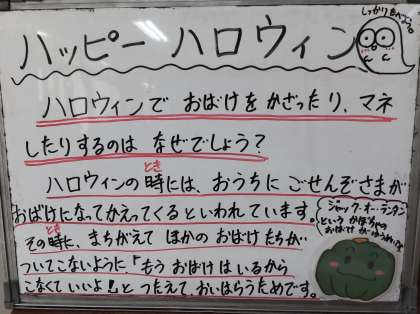 しっかりたべてる
ハッピー ハロウィン
ハロウィンで おばけを かざったり、マネ
したりするのは なぜでしょう？
とき
ハロウィンの 時には、おうちに ごせんぞさまが
おばけになって かえってくると いわれています。
とき
その時に、まちがえて ほかの おばけたちが
ついてこないように、「もう おばけは いるから
こなくて いいよ!」と つたえて、おいはらうためです。
ジャック・オー・ランタン
という かぼちゃの
おばけ